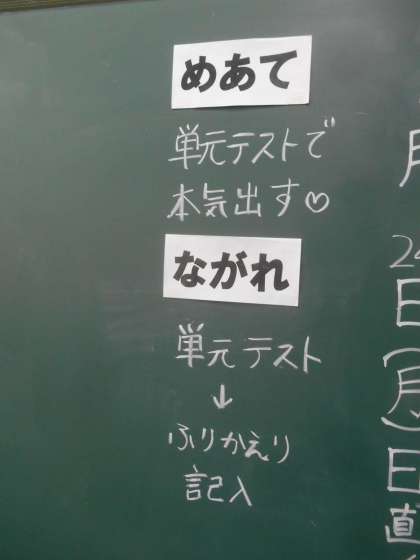 めあて
単元テストで
本気出す♡
ながれ
単元テスト
↓
ふりかえり
記入
月
24
日(月)
日直